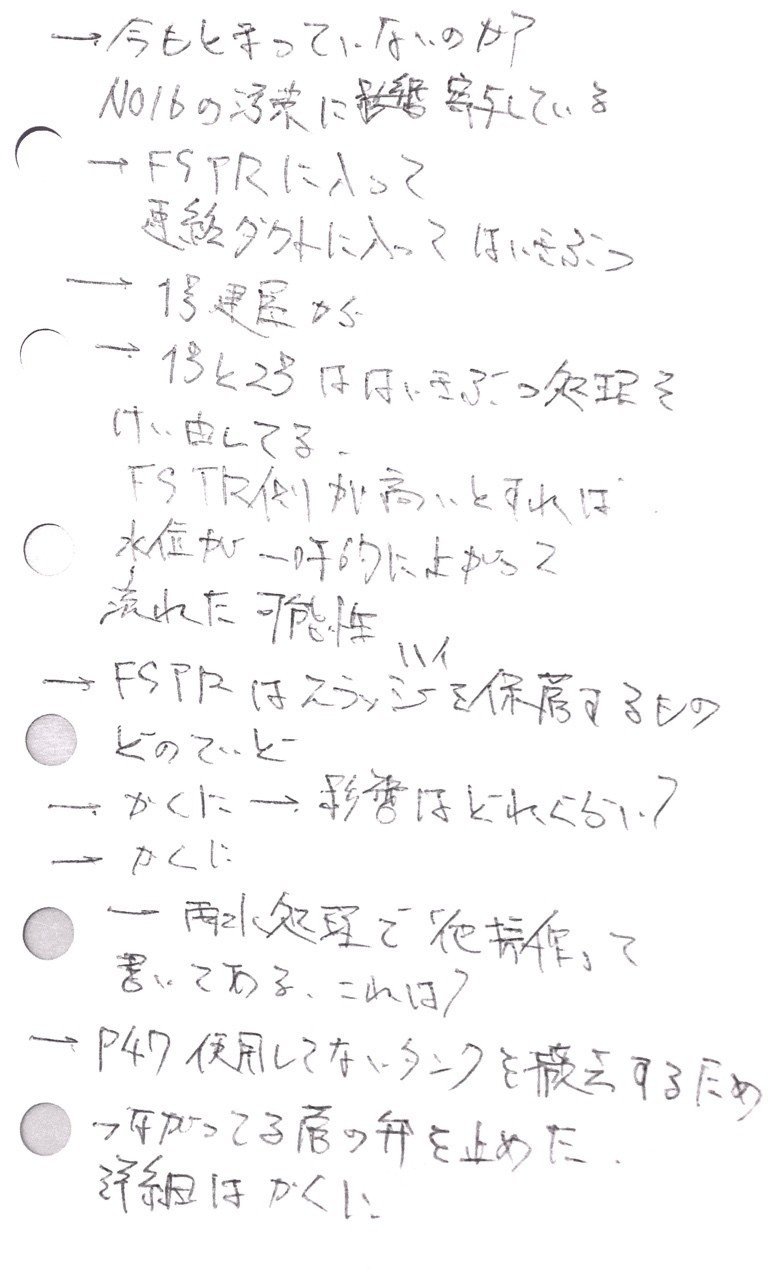 → 今もとまっていないのか?
NO16の汚染に 寄与している
→ FSTRに入って
連絡ダクトに入って はいきぶつ
→ 1号建屋から
→ 1号と2号は はいきぶつ処理を
けい由してる.
FSTR側が高いとすれば.
水位が一時的に上がって
流れた可能性
→ FSTRはスラッジを保管するもの
ハイ
どのていど
→ かくに → 影響はどれくらい?
→ かくに
→ 雨水処理で「他操作」って
書いてある、これは?
→ P47 使用してないタンクを撤去するため
つながってる管の弁を止めた.
詳細はかくに